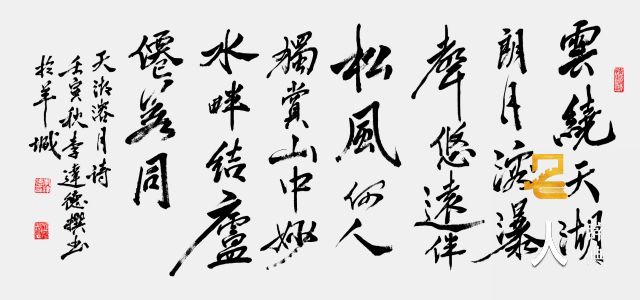 雲繞天湖
朗月溶瀑
聲悠遠伴
松風何人
獨賞山中妙
水畔結廬
僊同
天湖溶月詩
壬寅秋李達德撰书
於羊城
人